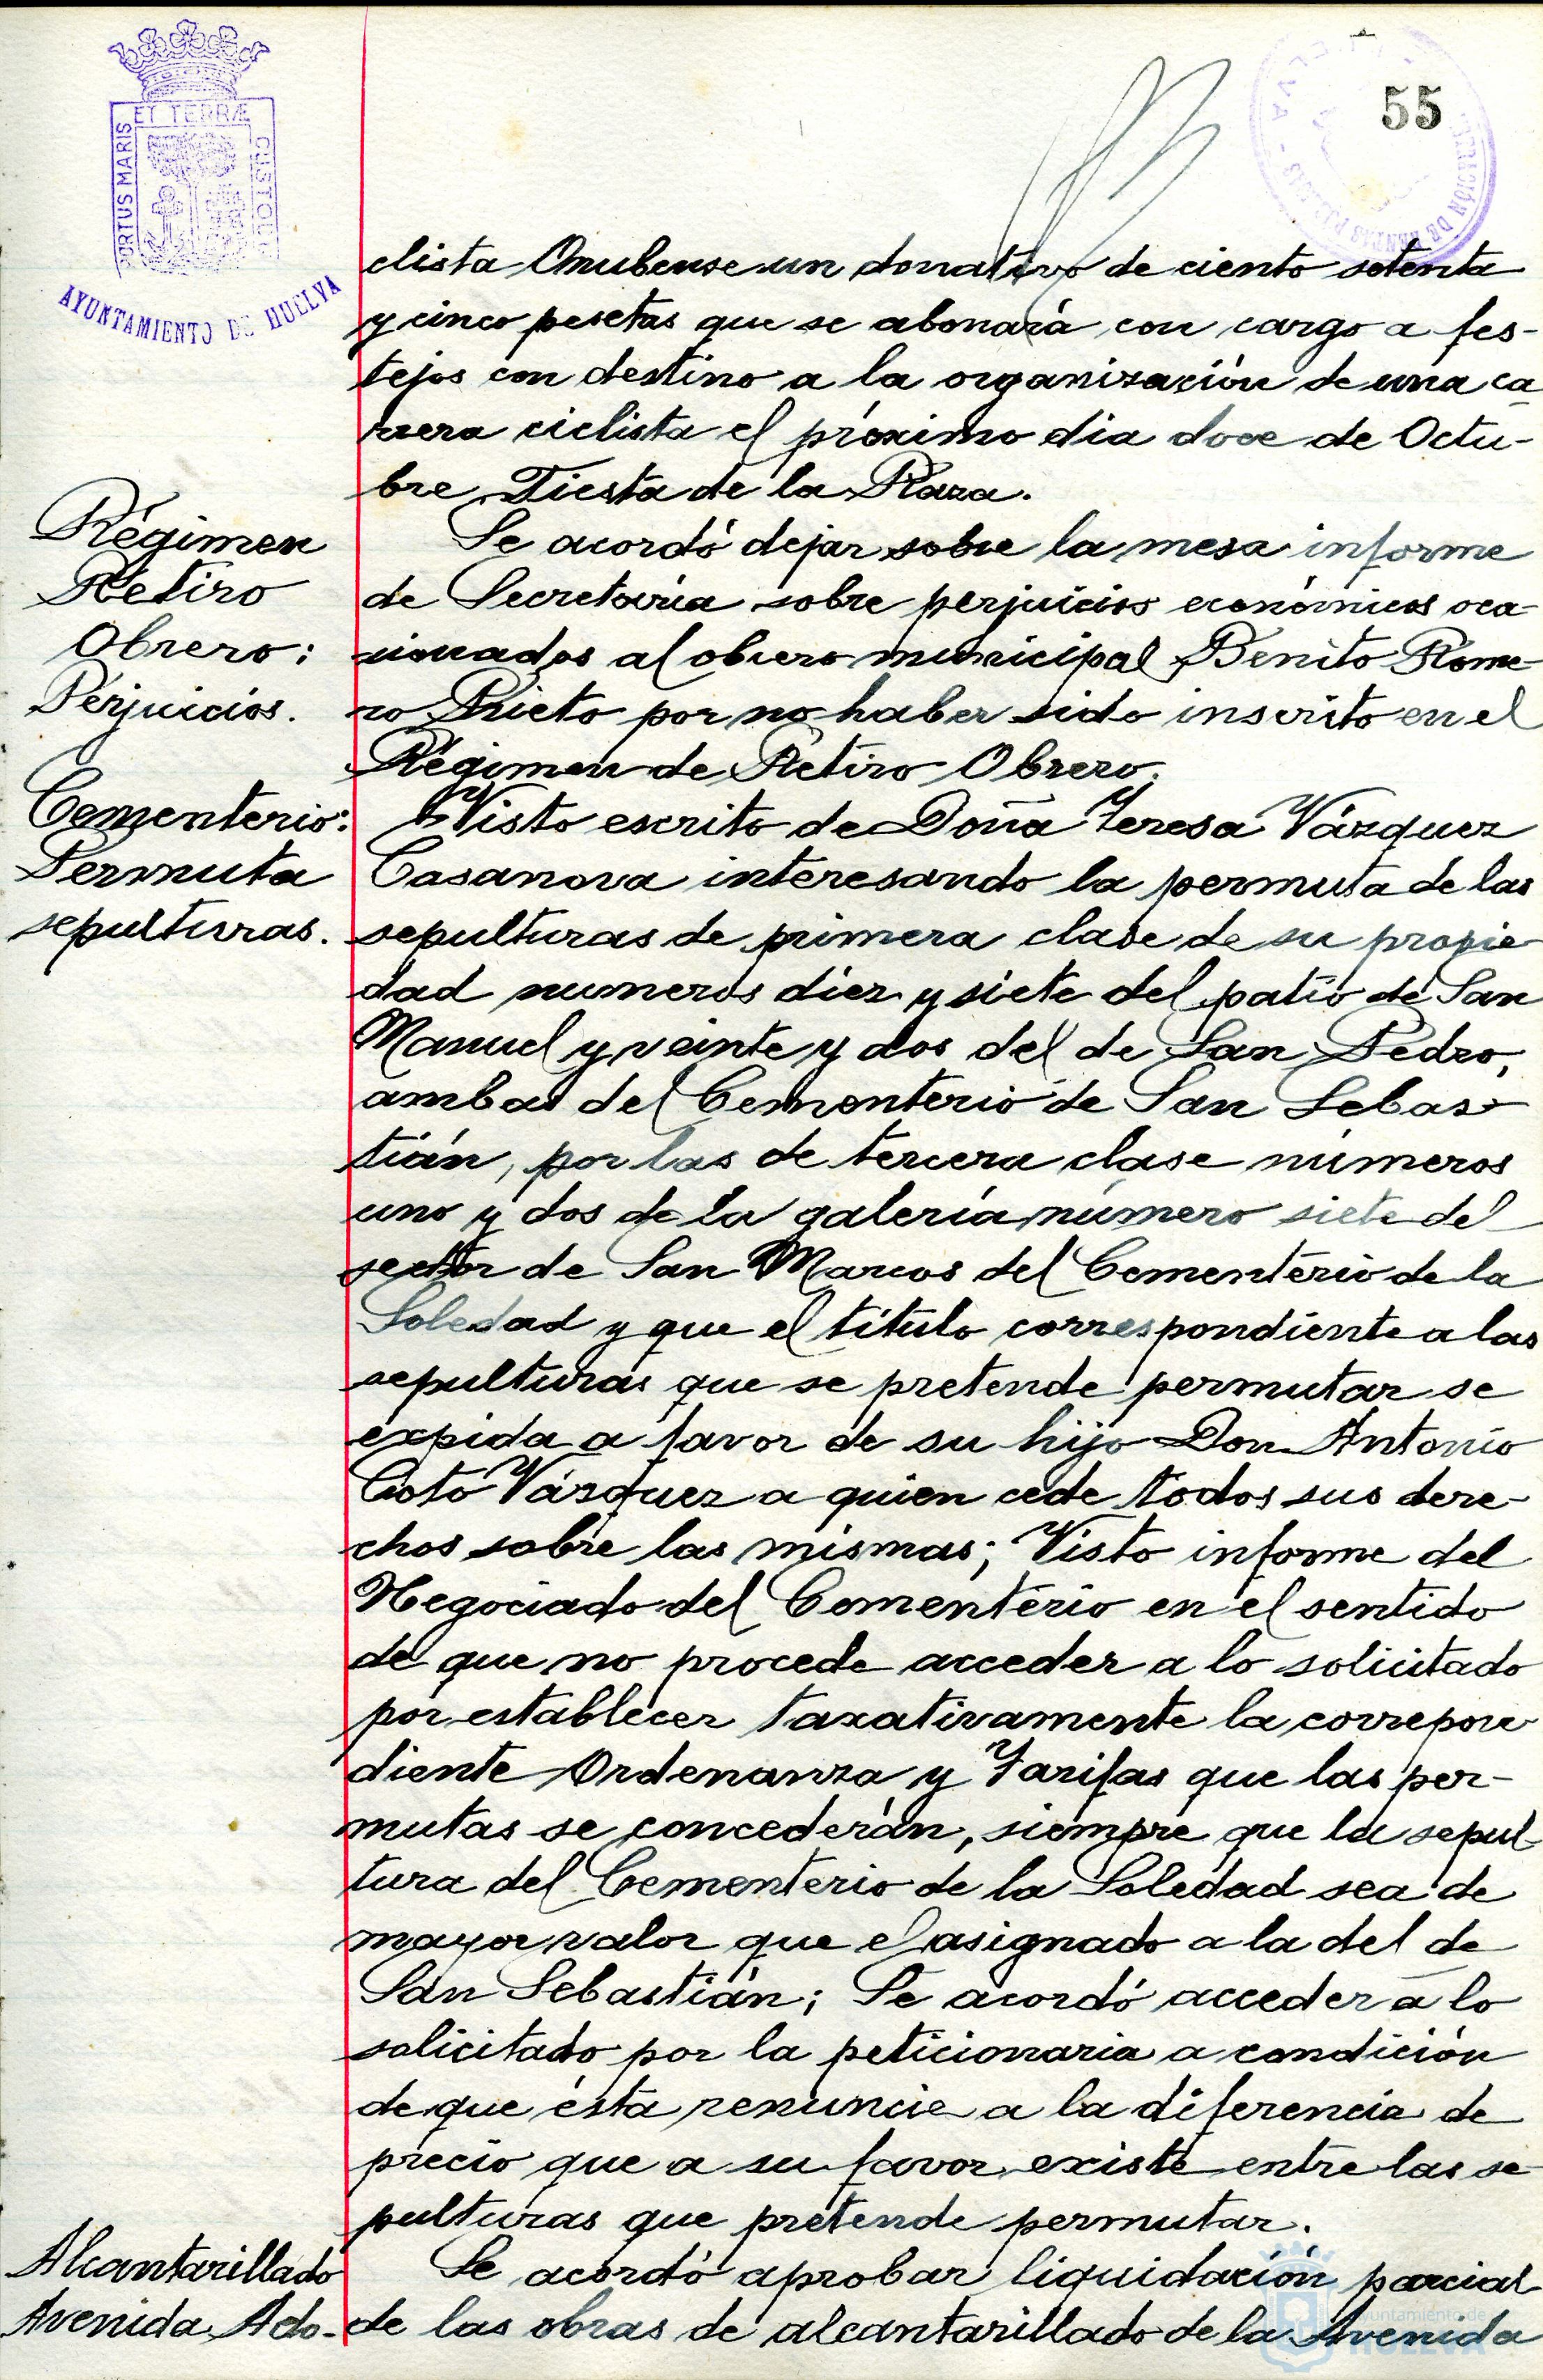 55
PORTUS MARIS
ET TERRÆ
CUSTODI
AYUNTAMIENTO DE HUELVA
clista Onubense un donativo de ciento setenta
y cinco pesetas que se abonará con cargo a fes-
tejos con destino a la organización de una ca
rrera ciclista el próximo dia doce de Octu-
bre, Fiesta de la Raza.
Régimen
Retiro
Obrero:
Perjuicios.
Se acordó dejar sobre la mesa informe
de Secretaría sobre perjuicios económicos oca-
sionados al obrero municipal Benito Rome-
ro Prieto por no haber sido inscrito en el
Régimen de Retiro Obrero.
Cementerio:
Permuta
sepulturas.
Visto escrito de Doña Teresa Vázquez
Casanova interesando la permuta de las
sepulturas de primera clase de su propie-
dad numeros diez y siete del patio de San
Manuel y veinte y dos del de San Pedro,
ambas del Cementerio de San Sebas-
tián, por las de tercera clase números
uno y dos de la galería número siete del
sector de San Marcos del Cementerio de la
Soledad y que el título correspondiente a las
sepulturas que se pretende permutar se
expida a favor de su hijo Don Antonio
Coto Vázquez a quien cede todos sus dere-
chos sobre las mismas; Visto informe del
Negociado del Cementerio en el sentido
de que no procede acceder a lo solicitado
por establecer taxativamente la correpon-
diente Ordenanza y Tarifas que las per-
mutas se concederán, siempre que la sepul-
tura del Cementerio de la Soledad sea de
mayor valor que el asignado a la del de
San Sebastián; Se acordó acceder a lo
solicitado por la peticionaria a condición
de que ésta renuncie a la diferencia de
precio que a su favor existe entre las se-
pulturas que pretende permutar.
Alcantarillado
Avenida Ado-
Se acordó aprobar liquidación parcial
de las obras de alcantarillado de la Avenida
Ayuntamiento de
HUELVA